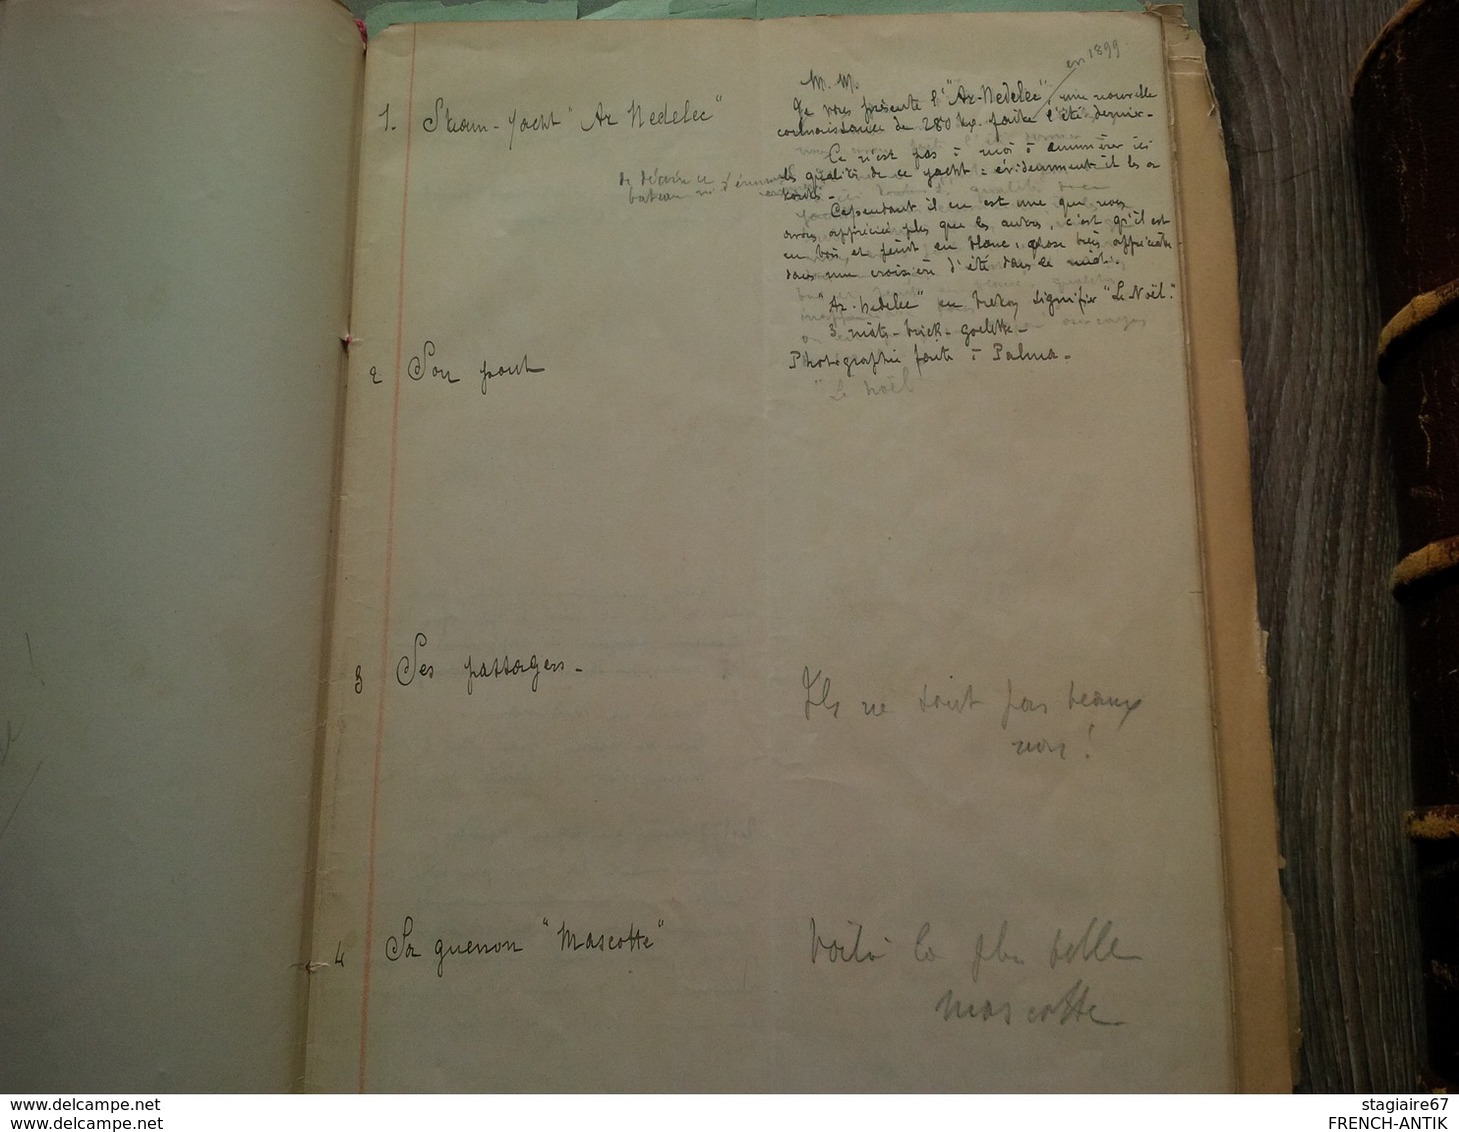 en 1899
M. M.
1. Steam-Yacht "Ar Nedelec"
Je vous présente l'"Ar-Nedelec", une nouvelle
connaissance de 280 tx. faite l'été dernier.
Ce n'est pas à moi à énumérer ici
les qualités de ce yacht : évidemment il les a
toutes.
de décrire ce
bateau ni d'énumérer
Cependant il en est une que nous
avons appréciée plus que les autres, c'est qu'il est
en bois, et peint en blanc, chose très appréciable
dans une croisière d'été dans le midi.
"Ar-Nedelec" en breton signifie "Le Noël".
3 mâts-brick-goelette.
Photographie faite à Palma.
"Le Noël
2 Son pont
3 Ses passagers.
Ils ne sont pas beaux
non !
4 Sa guenon "Mascotte"
Voilà la plus belle
mascotte
www.delcampe.net
stagiaire67
FRENCH-ANTIK